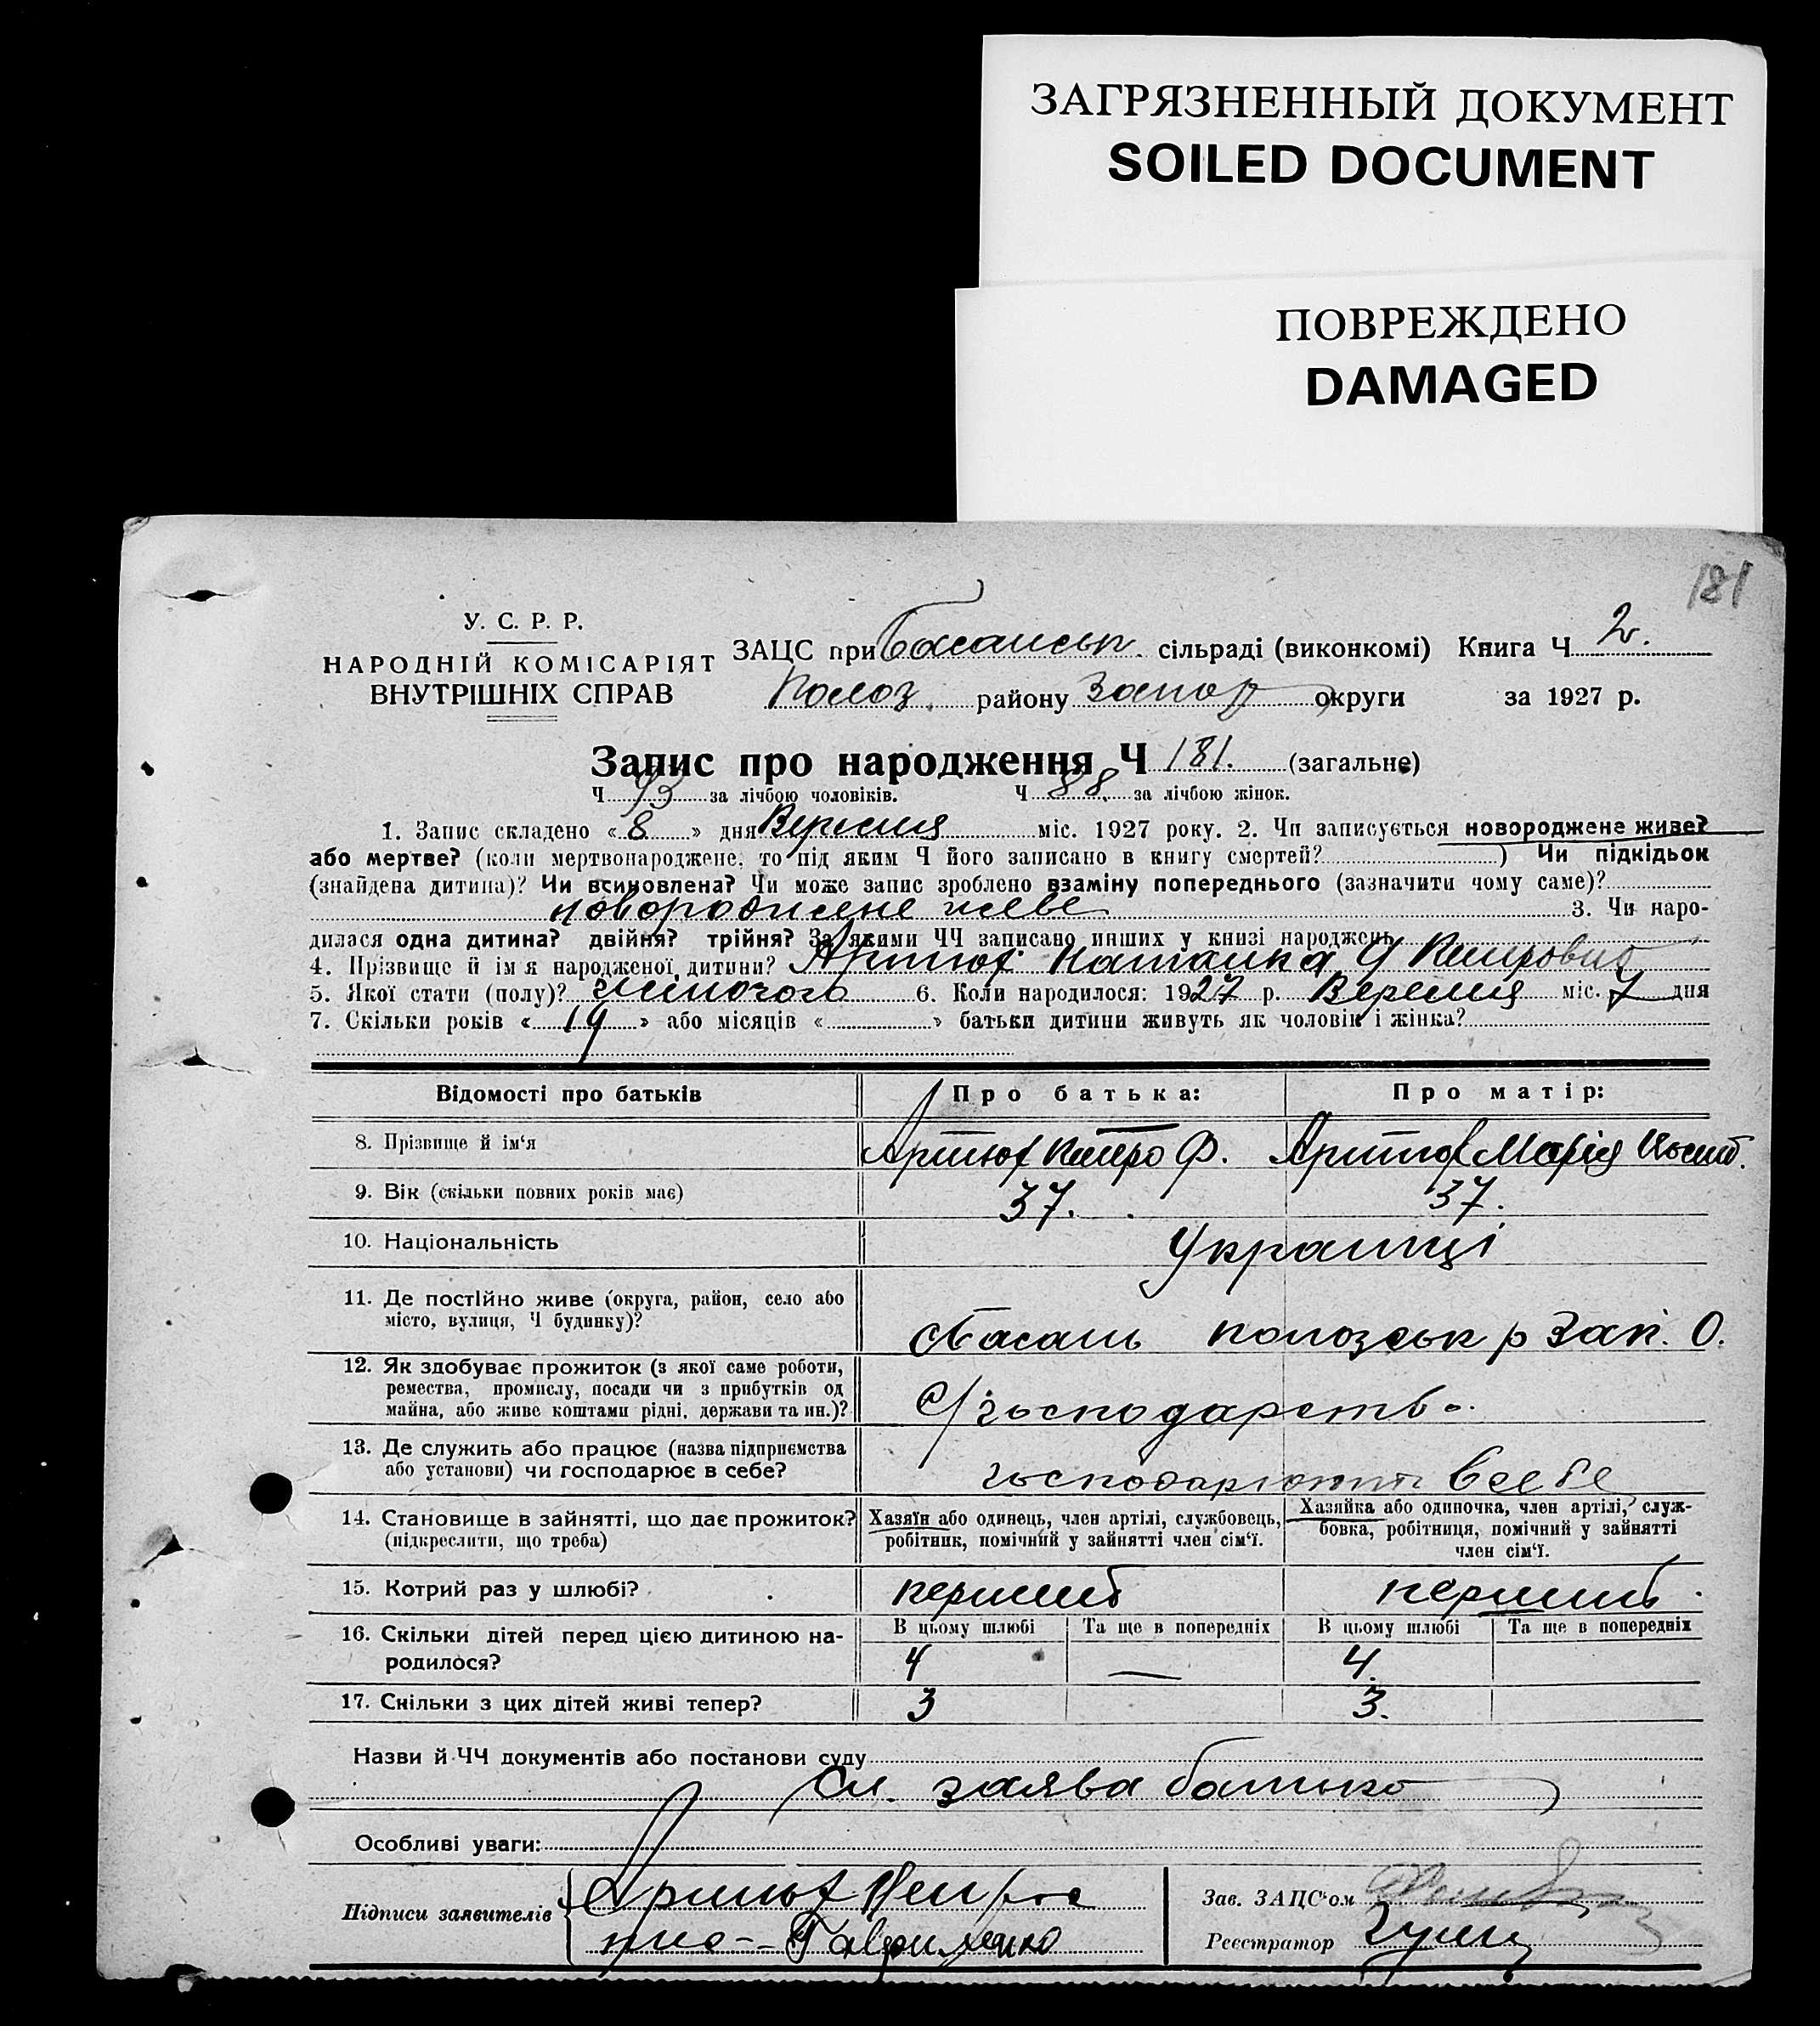 ЗАГРЯЗНЕННЫЙ ДОКУМЕНТ
SOILED DOCUMENT
ПОВРЕЖДЕНО
DAMAGED
181
У. С. Р. Р.
НАРОДНІЙ КОМІСАРІЯТ
ВНУТРІШНІХ СПРАВ
ЗАЦС при Басанськ. сільраді (виконкомі) Книга Ч 2.
Полог. району Запор округи за 1927 р.
Запис про народження Ч 181. (загальне)
Ч 93 за лічбою чоловіків. Ч 88. за лічбою жінок.
1. Запис складено « 8 » дня Вересня міс. 1927 року. 2. Чи записується новороджене живе?
або мертве? (коли мертвонароджене, то під яким Ч його записано в книгу смертей? ) Чи підкідьок
(знайдена дитина)? Чи всиновлена? Чи може запис зроблено взаміну попереднього (зазначити чому саме)?
новороджене живе 3. Чи наро-
дилася одна дитина? двійня? трійня? За якими ЧЧ записано инших у книзі народжень
4. Прізвище й імя народженої дитини? Артюх Наталка
5. Якої стати (полу)? жіночого 6. Коли народилося: 1927 р. Вересня міс. 7 дня
7. Скільки років « 19 » або місяців « » батьки дитини живуть як чоловік і жінка?
Відомості про батьків Про батька: Про матір:
8. Прізвище й ім‘я Артюх Петро Ф. Артюх Марія
9. Вік (скільки повних років має) 37. 37.
10. Національність Українці
11. Де постійно живе (округа, район, село або
місто, вулиця, Ч будинку)?
с Басань пологськ р Зап. О.
12. Як здобуває прожиток (з якої саме роботи,
ремества, промислу, посади чи з прибутків од
майна, або живе коштами рідні, держави та ин.)?
С/господарство.
13. Де служить або працює (назва підприємства
або установи) чи господарює в себе?
господарюють в себе
14. Становище в зайнятті, що дає прожиток?
(підкреслити, що треба)
Хазяїн або одинець, член артілі, службовець,
робітник, помічний у зайнятті член сім‘ї.
Хазяйка або одиночка, член артілі, служ-
бовка, робітниця, помічний у зайнятті
член сім‘ї.
15. Котрий раз у шлюбі? перший перший.
16. Скільки дітей перед цією дитиною на-
родилося?
В цьому шлюбі Та ще в попередніх В цьому шлюбі Та ще в попередніх
4 — 4.
17. Скільки з цих дітей живі тепер? 3 3.
Назви й ЧЧ документів або постанови суду
Сл. заява батько
Особливі уваги:
Підписи заявителів Артюх
Гавриленко
Зав. ЗАЦС‘ом
Реєстратор